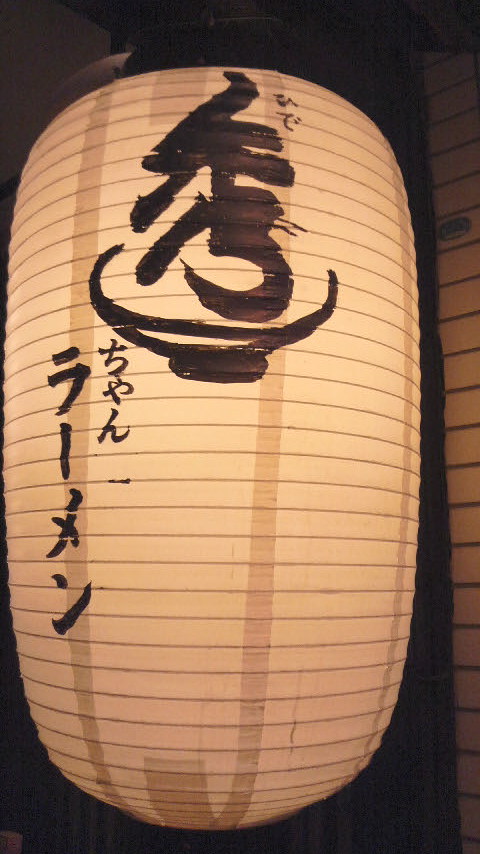 秀
ひで
ちゃん
ラーメン